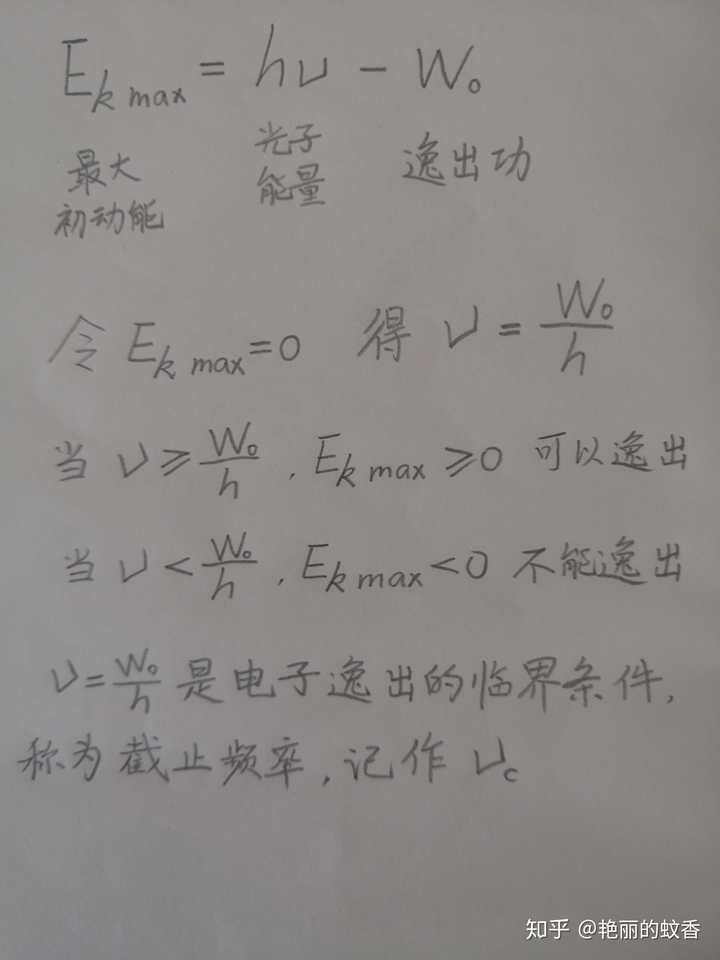 E_k max = hν − W₀
最大 光子 逸出功
初动能 能量
令 E_k max = 0 得 ν = W₀/h
当 ν ≥ W₀/h , E_k max ≥ 0 可以逸出
当 ν < W₀/h , E_k max < 0 不能逸出
ν = W₀/h 是电子逸出的临界条件,
称为截止频率, 记作 ν_c
知乎 @艳丽的蚊香